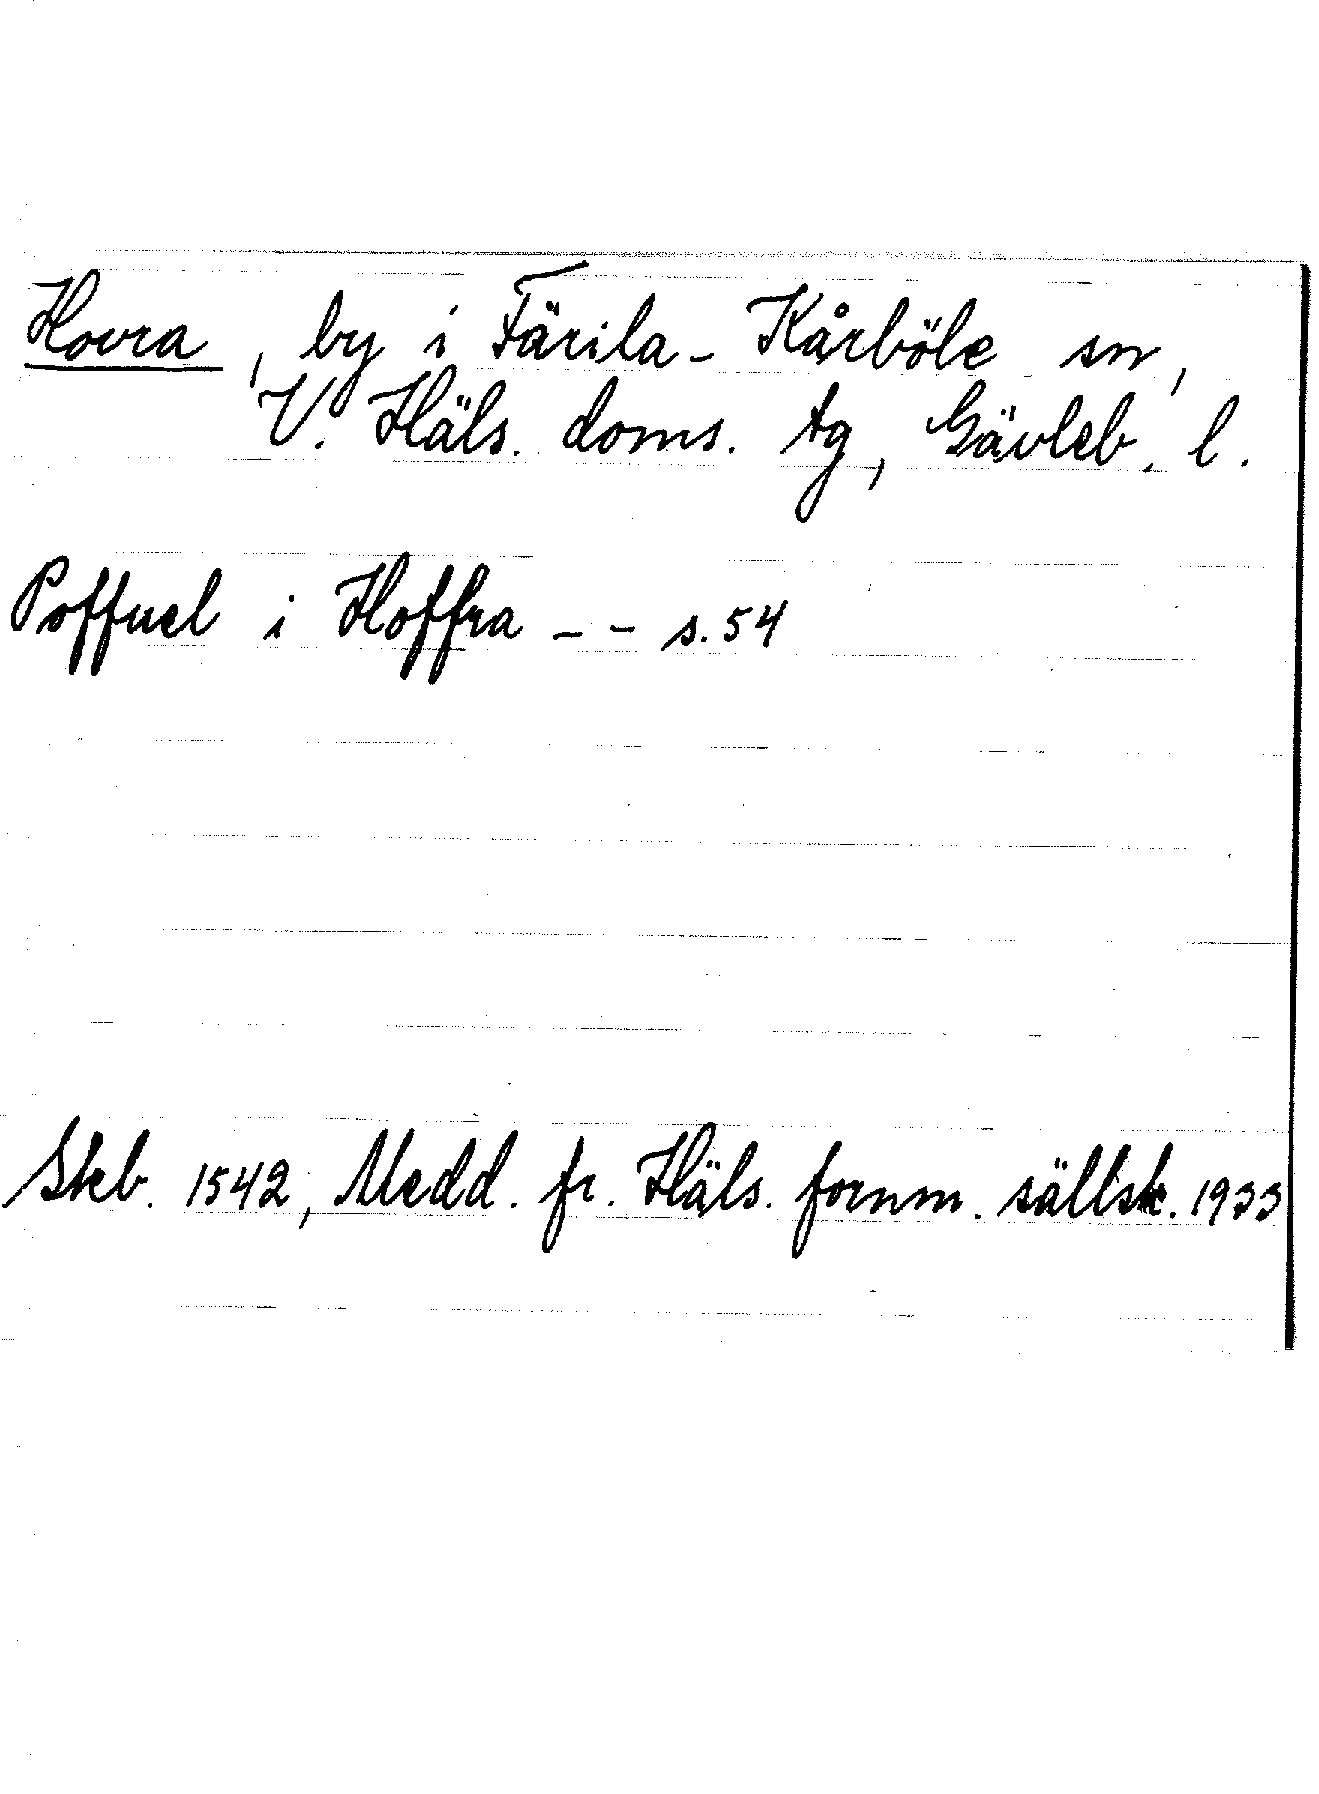 Hovra, by i Färila-Kårböle sn,
V. Häls. doms. tg, Gävleb. l.
Poffuel i Hoffra - - s. 54
Skb. 1542, Medd. fr. Häls. fornm. sällsk. 1933